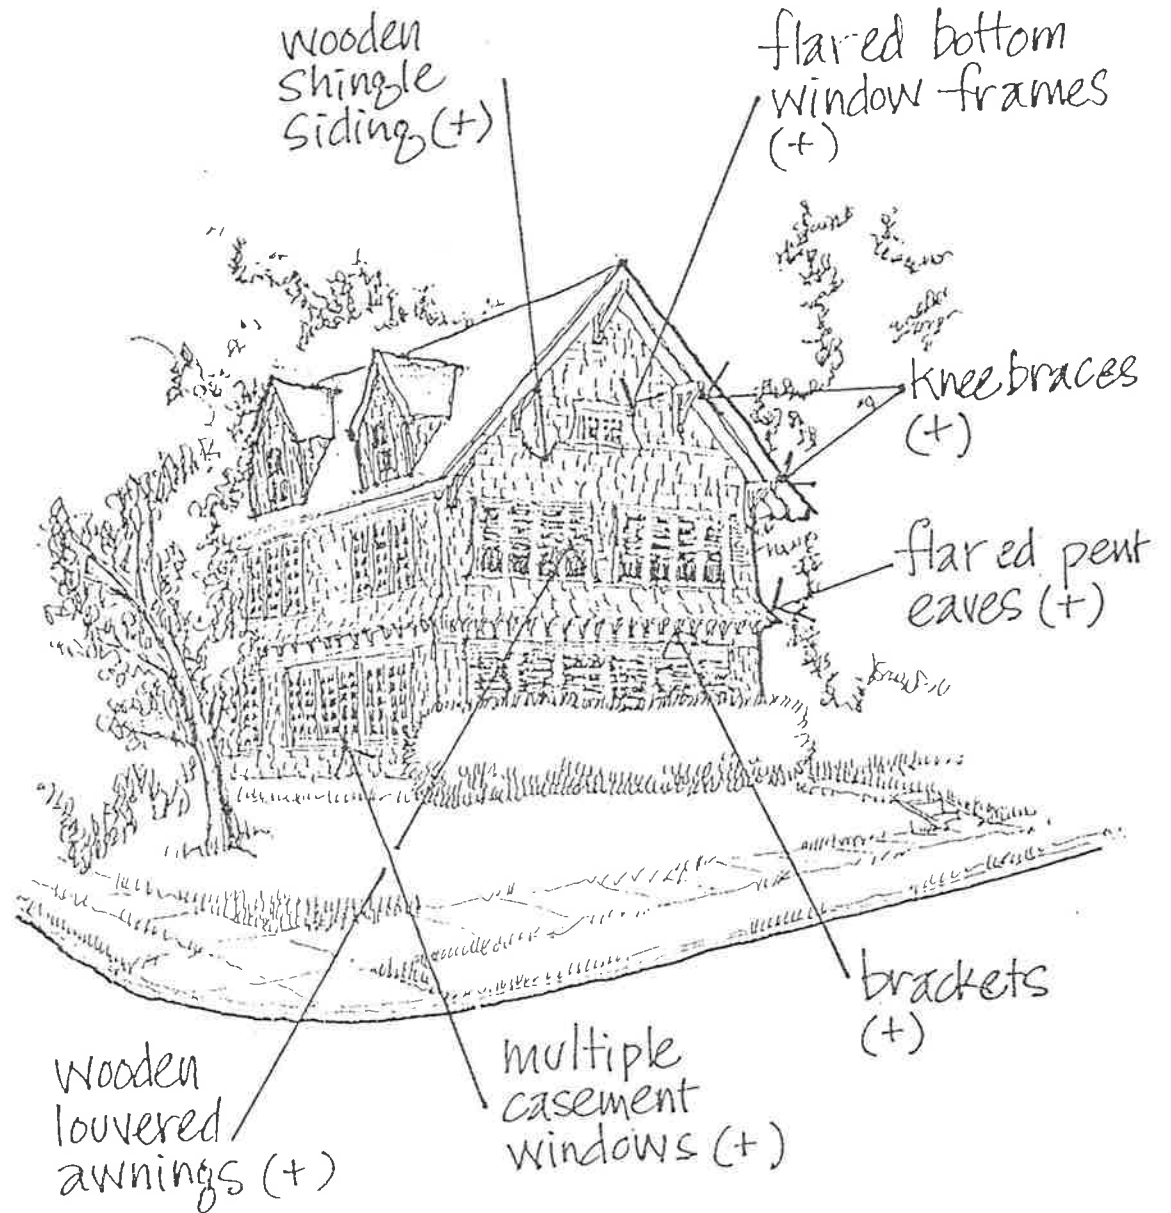 wooden
shingle
siding (+)
flared bottom
window frames
(+)
knee braces
(+)
flared pent
eaves (+)
brackets
(+)
multiple
casement
windows (+)
wooden
louvered
awnings (+)